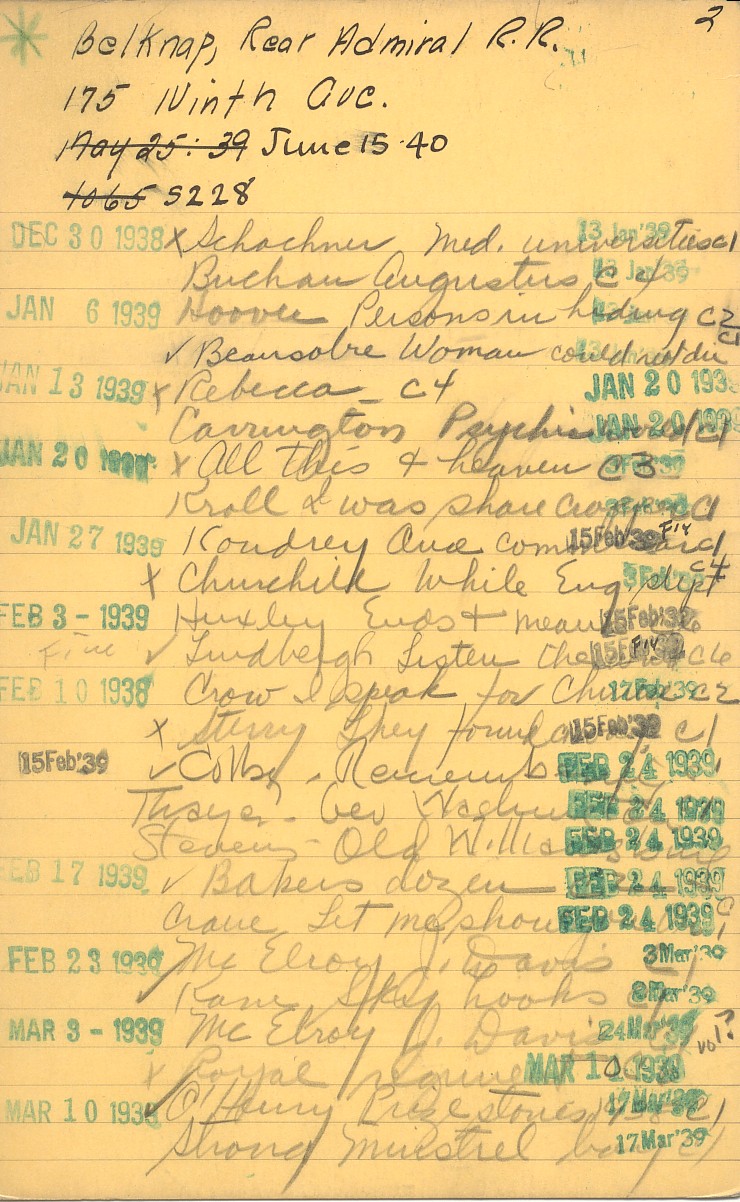 2
Belknap, Rear Admiral R.R.
175 Ninth Ave.
May 25: 39 June 15 40
1065 S228
DEC 30 1938 x Schachner Med. universities c1 13 Jan'39
Buchan Augustus C4 13 Jan'39
JAN 6 1939 Hoover Persons in hiding C2
✓ Beausobre Woman could not die c1
JAN 13 1939 x Rebecca - c4 JAN 20 1939
Carrington Psychic World c1 JAN 20 1939
JAN 20 x All this & heaven C3
Kroll I was share cropper c1
JAN 27 1939 15Feb'39 Fiv c1
x Churchill While Eng slept c4
FEB 3 - 1939 Huxley Ends & means 15Feb'39
Fine ✓ Lindbergh Listen the wind c6 15Feb Fiv
FEB 10 1938 Crow I speak for Chinese c2 17Feb'39
x Sterry They found a c1 15Feb'39
15Feb'39 ✓ FEB 24 1939
Thayer Geo Washington FEB 24 1939
Stevens - Old Williamsburg FEB 24 1939
FEB 17 1939 ✓ Bakers dozen FEB 24 1939
Crane Let me show you c1 FEB 24 1939
FEB 23 1939 McElroy J. Davis c1 3Mar'39
✓ Kane Sky hooks c1 3Mar'39
MAR 3 - 1939 McElroy J. Davis 24Mar'39 vol?
x Royal MAR 10 1939
MAR 10 1938 ✓ O'Henry Prize stories c1 17Mar'39
Strong Minstrel boy c1 17Mar'39